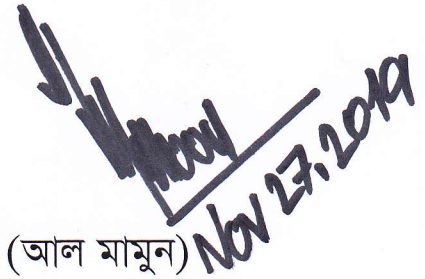 Nov 27, 2019
(আল মামুন)